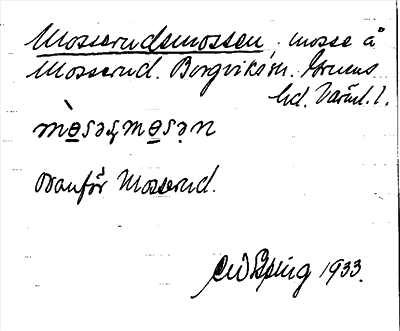 Mosserudsmossen, mosse å
Mosserud. Borgviks sn. Grums
hd. Värml. l.
mòsəʂmosən
ovanför Mosserud.
1933.